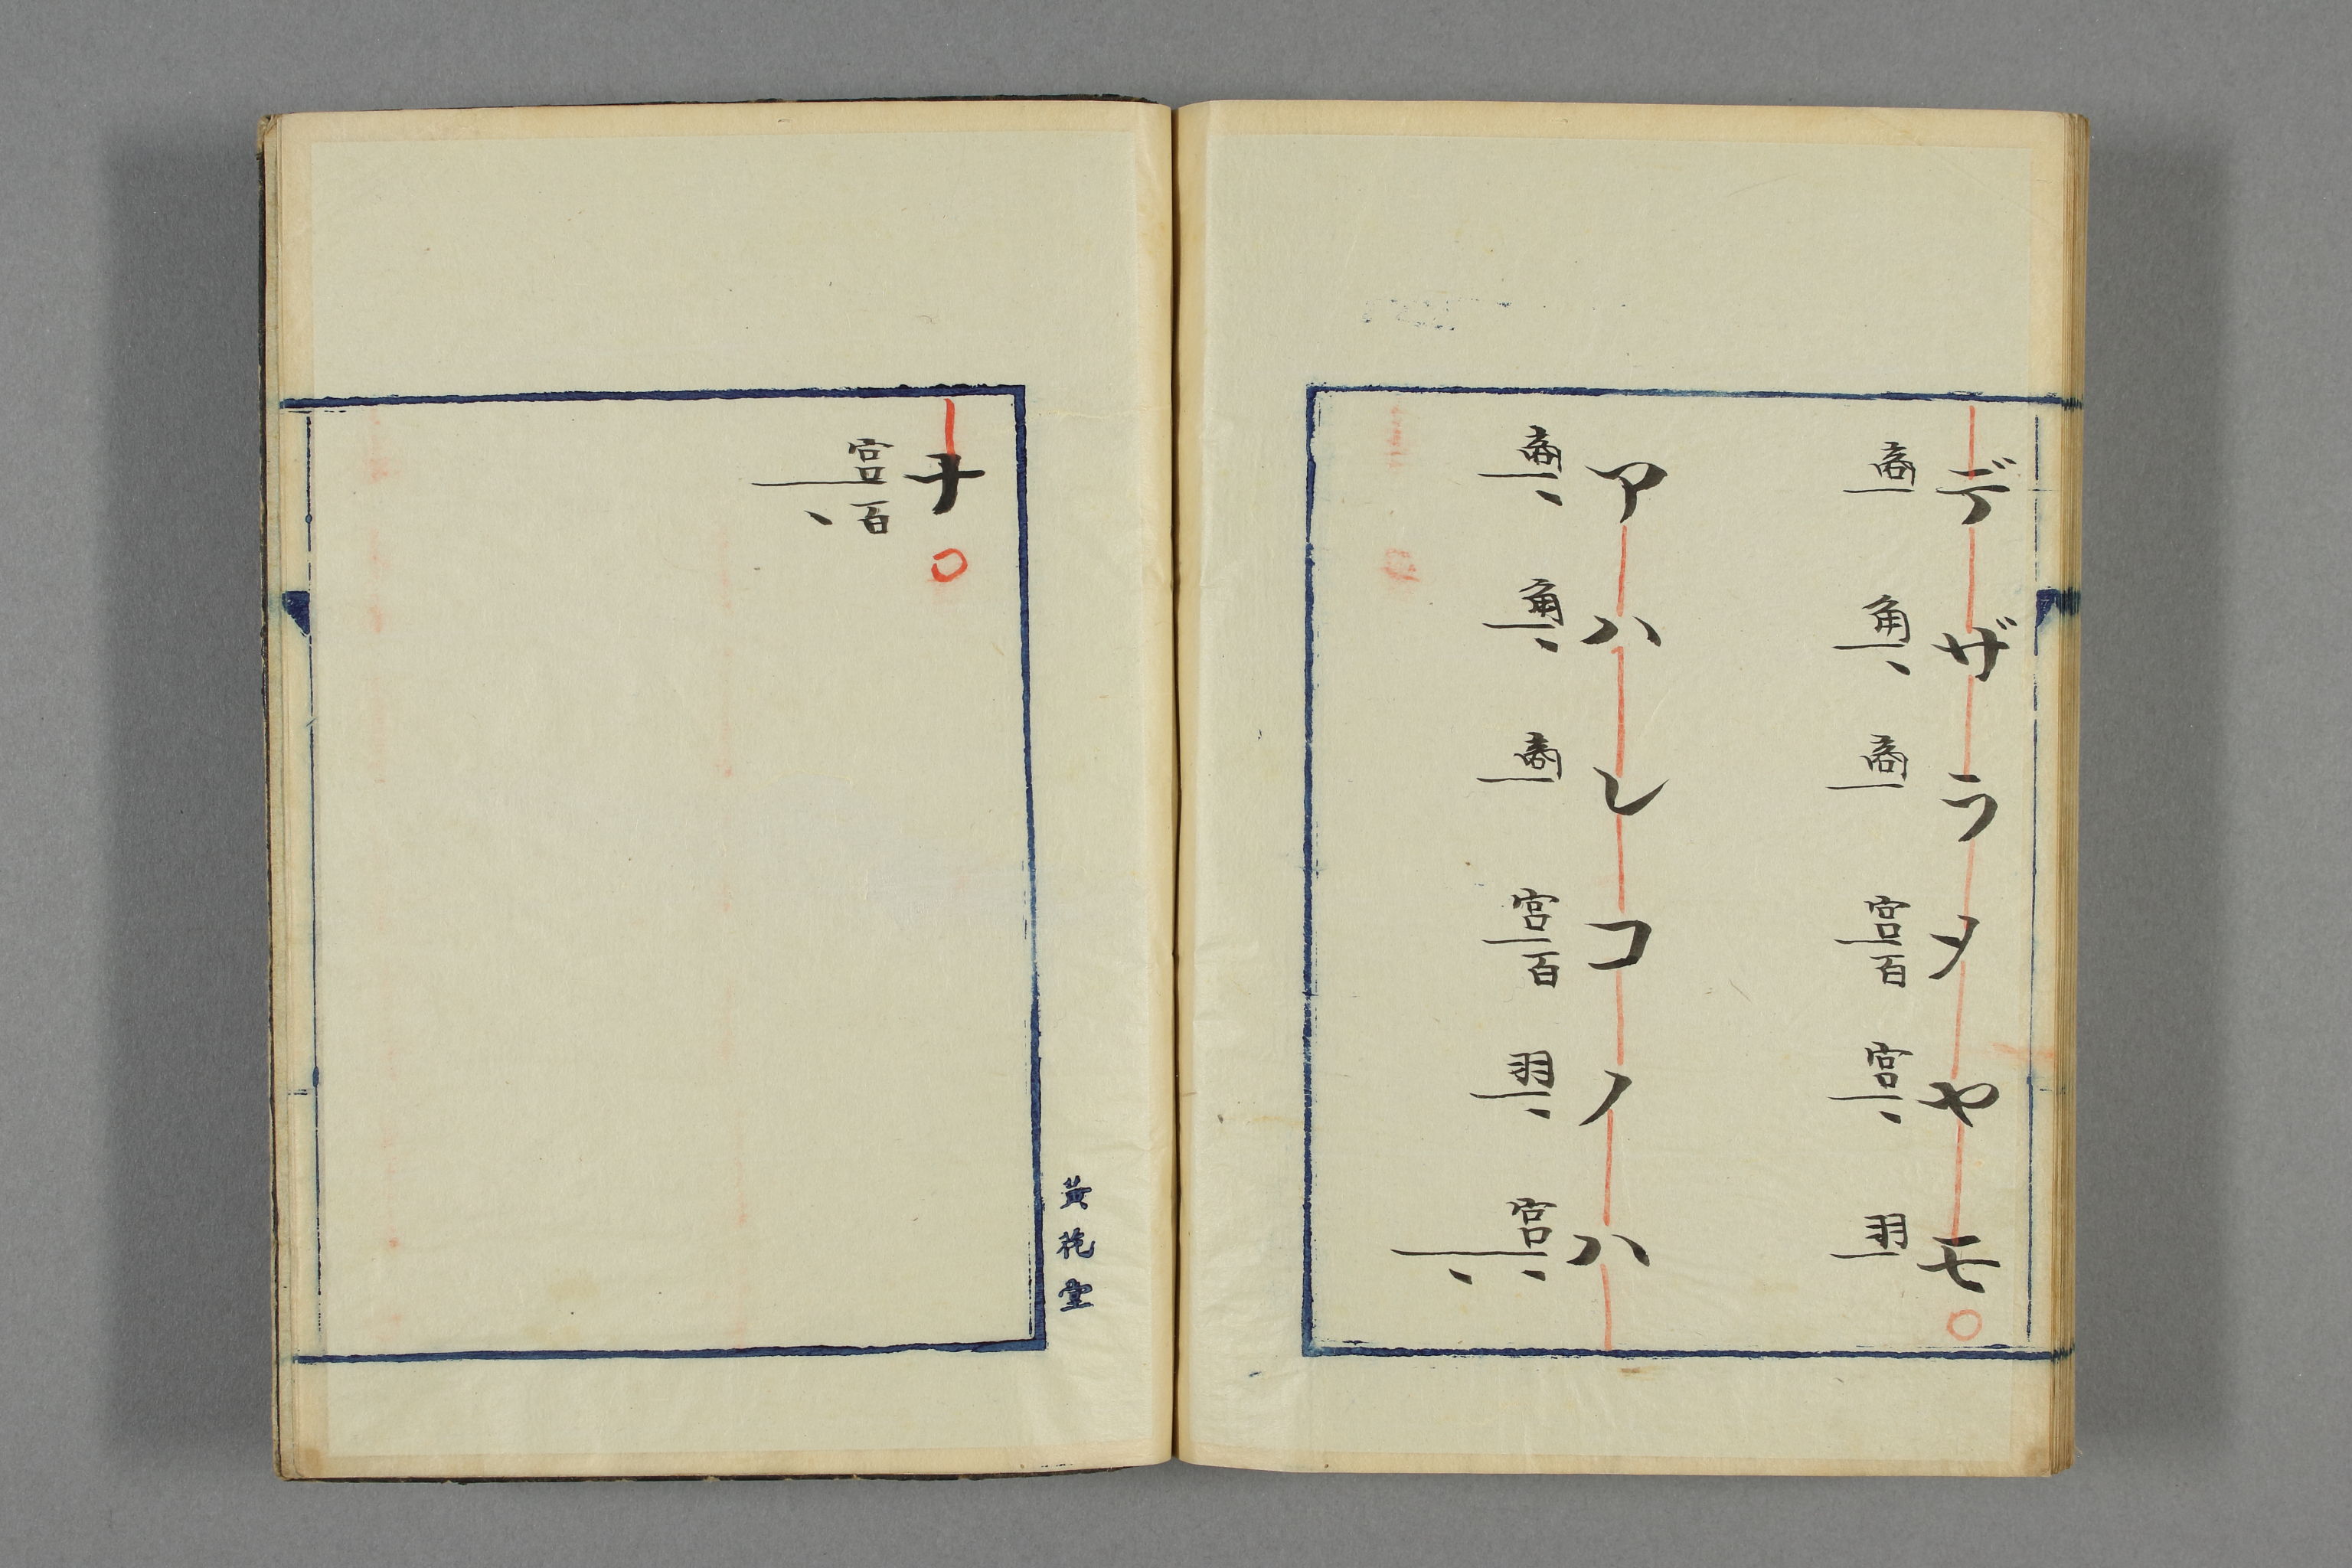 デザラヲヤモ
商角商宮百宮羽
アハレコノハ
商角商宮百羽宮
ナ
宮百
黄花堂